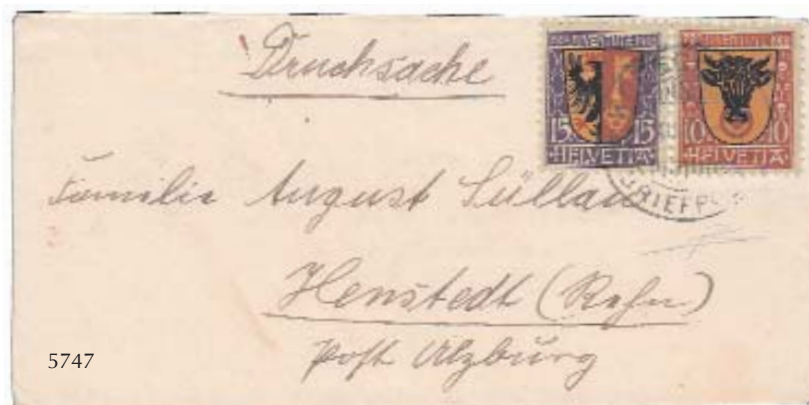 Drucksache
PRO JUVENTUTE
15 15
HELVETIA
10 10
HELVETIA
BRIEFP
Familie August Süllau
Henstedt (Rhen)
Post Ulzburg
5747